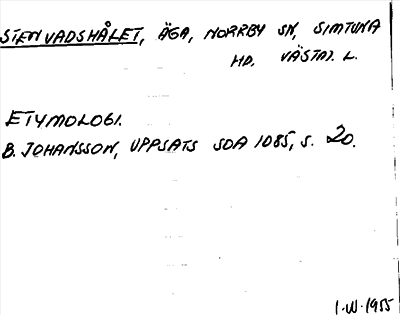 STENVADSHÅLET, ÄGA, NORRBY SN, SIMTUNA
HD. VÄSTM. L.
ETYMOLOGI.
B. JOHANSSON, UPPSATS SOA 1085, S. 20.
I.W.1955